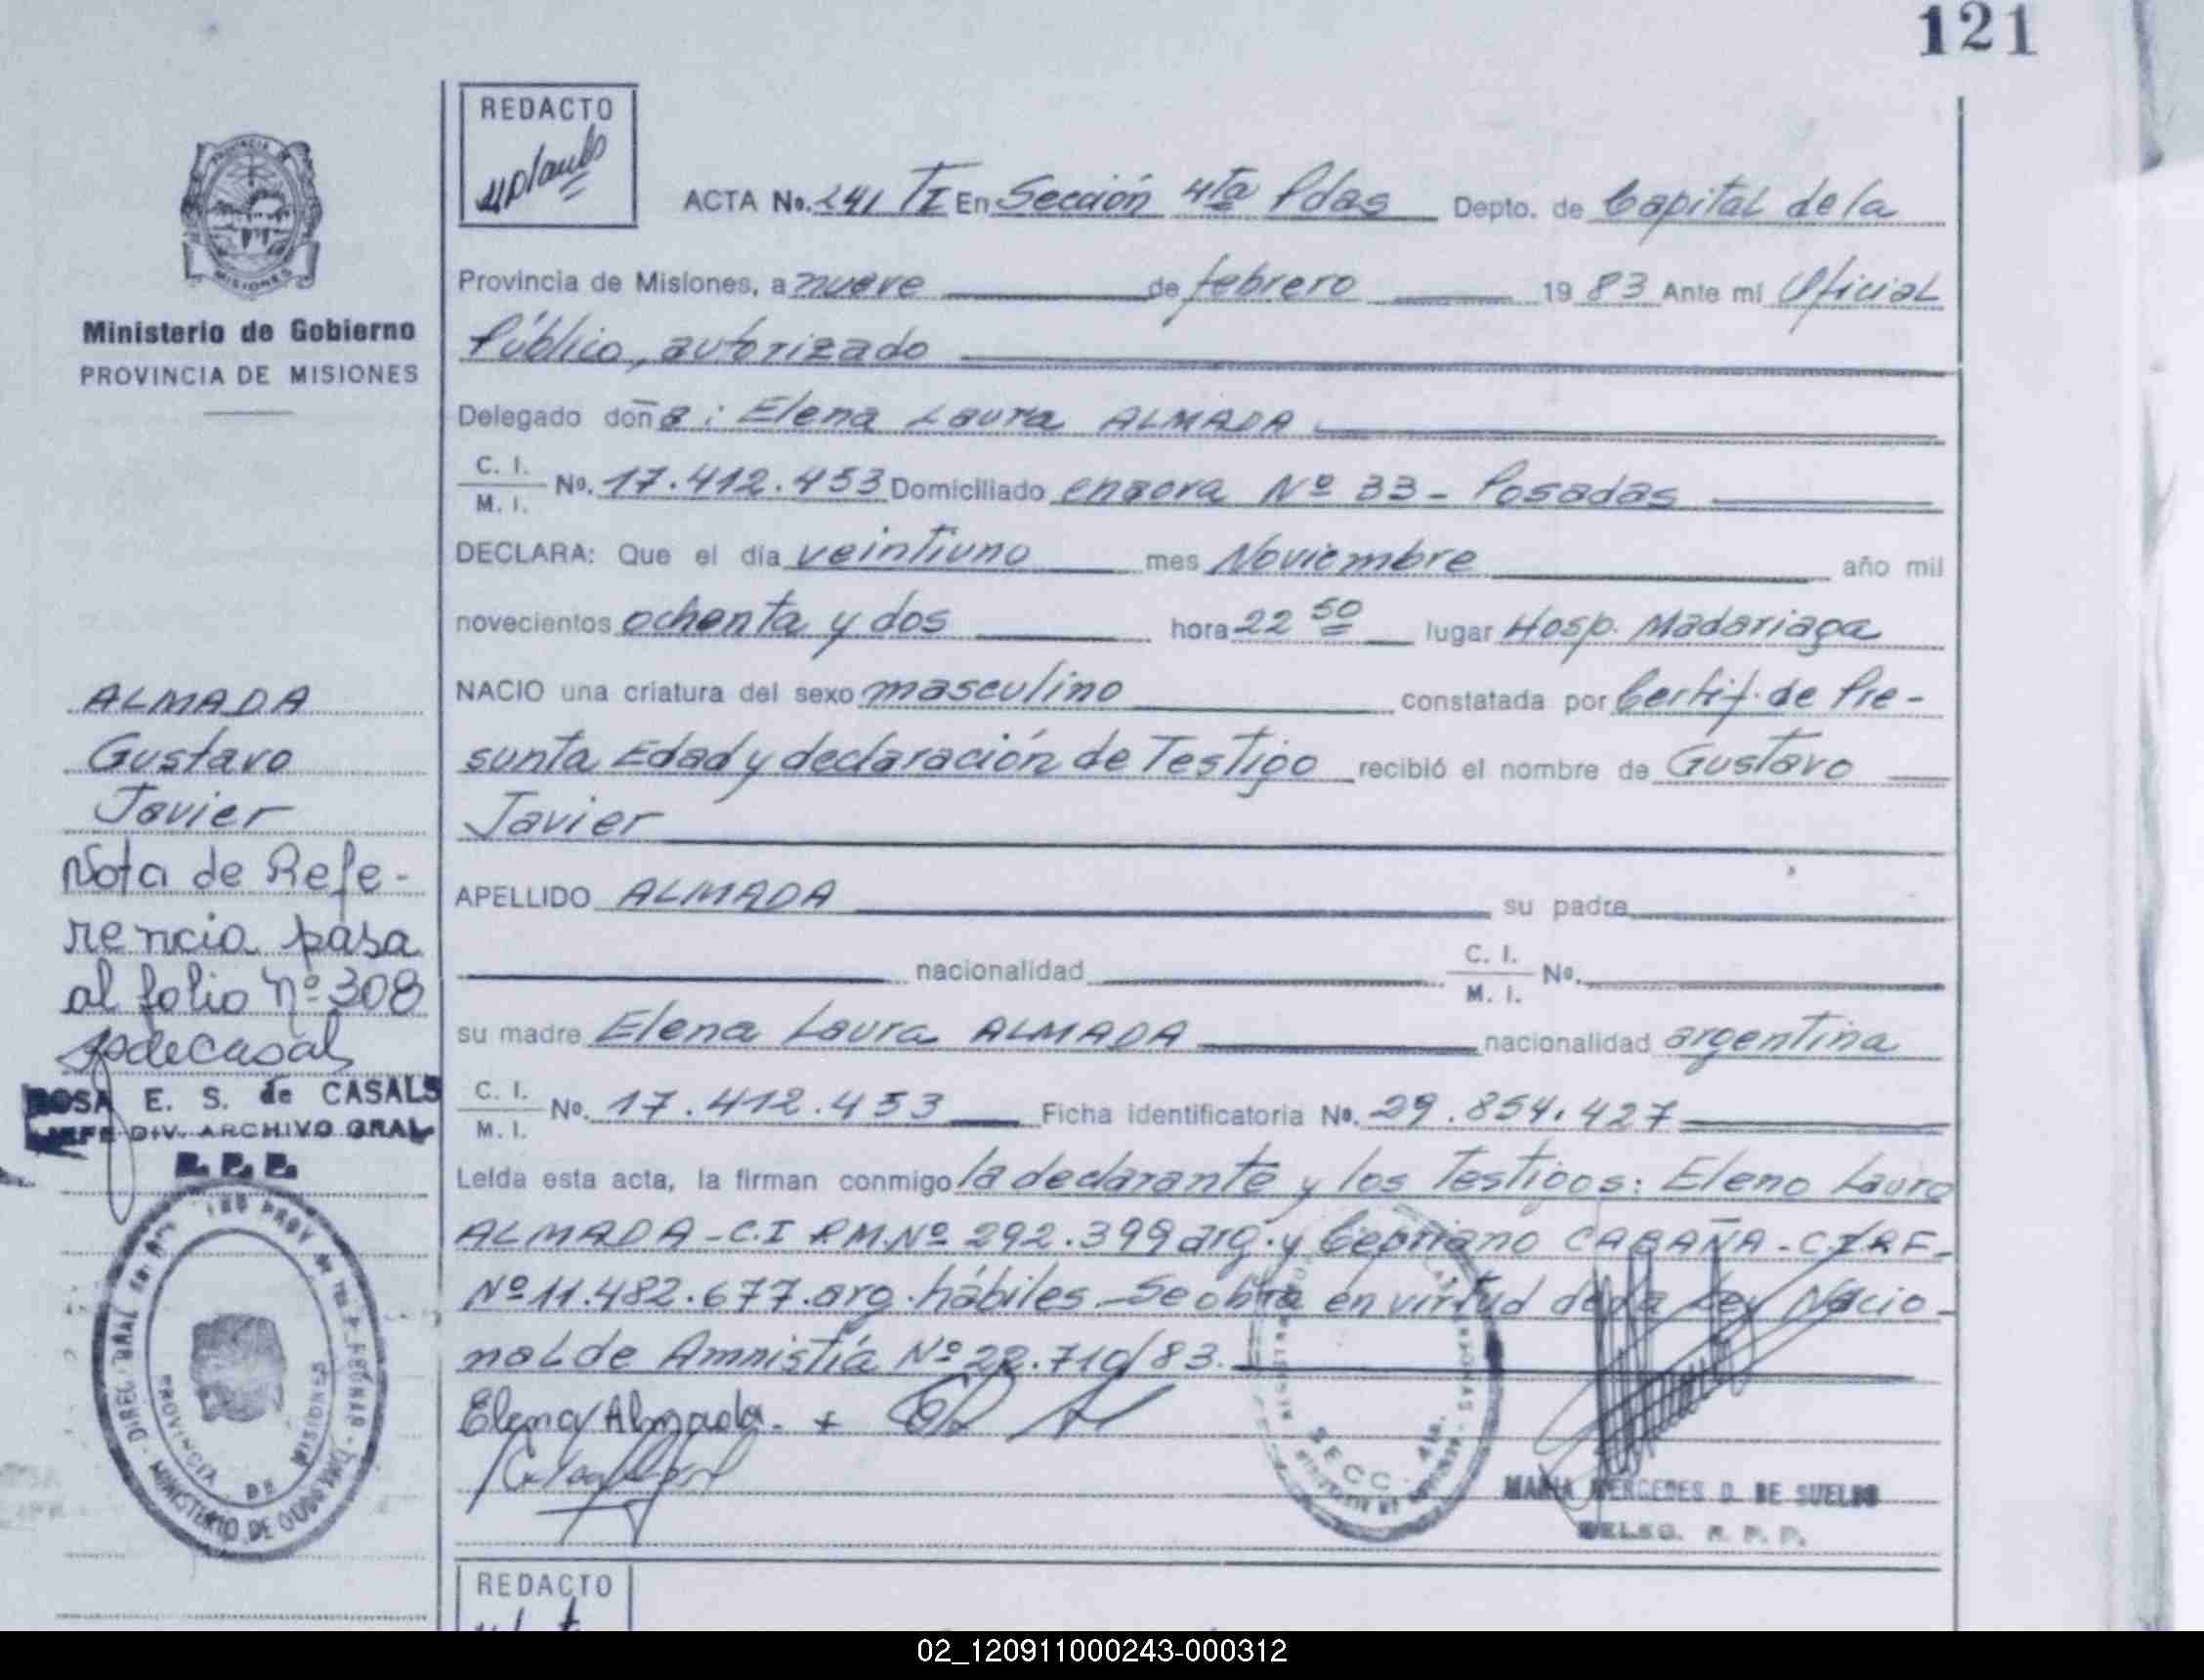 121
REDACTO
PROVINCIA DE
MISIONES
Ministerio de Gobierno
PROVINCIA DE MISIONES
ACTA No. 241 TI En Sección 4ta Pdas Depto. de Capital de la
Provincia de Misiones, a nueve de febrero 1983 Ante mi Oficial
Público, autorizado
Delegado doña: Elena Laura ALMADA
C. I.
M. I. No. 17.412.453 Domiciliado Nº 33 - Posadas
DECLARA: Que el día veintiuno mes Noviembre año mil
novecientos ochenta y dos hora 22 50 lugar Hosp. Madariaga
NACIO una criatura del sexo masculino constatada por Certif. de Pre-
sunta Edad y declaración de Testigo recibió el nombre de Gustavo
Javier
APELLIDO ALMADA su padre
nacionalidad C. I.
M. I. No.
su madre Elena Laura ALMADA nacionalidad argentina
C. I.
M. I. No. 17.412.453 Ficha identificatoria No. 29.854.427
Leída esta acta, la firman conmigo la declarante y los Testigos: Eleno Lauro
ALMADA - C.I P.M. Nº 292.399 arg. y Cepriano CABAÑA - C.I.R.F.
Nº 11.482.677. arg. hábiles - Se obra en virtud de la Ley Nacio-
nal de Amnistía Nº 22.710/83.
Elena Almada.
SECC. 4ta.
MARIA MERCEDES D. DE SUELDO
DELEG. R. P. P.
ALMADA
Gustavo
Javier
Nota de Refe-
rencia pasa
al folio nº 308
Sdecasals
ROSA E. S. de CASALS
JEFE DIV. ARCHIVO GRAL
R. P. P.
PROVINCIA DE MISIONES
MINISTERIO DE GOBIERNO
REDACTO
02_120911000243-000312